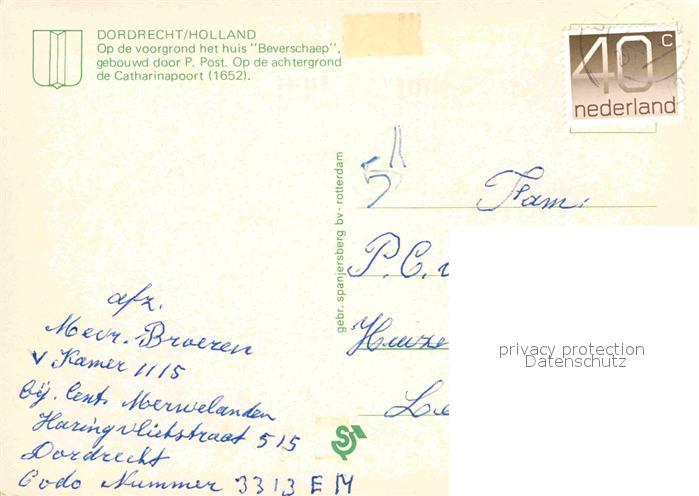 DORDRECHT/HOLLAND
Op de voorgrond het huis "Beverschaep",
gebouwd door P. Post. Op de achtergrond
de Catharinapoort (1652).
40 c
nederland
gebr. spanjersberg bv - rotterdam
Fam.
P.C.
privacy protection
Datenschutz
afz.
Mevr. Broeren
v Kamer 1115
bij. Cent. Merwelanden
Haringvlietstraat 515
Dordrecht
Codo Nummer 3313 EM